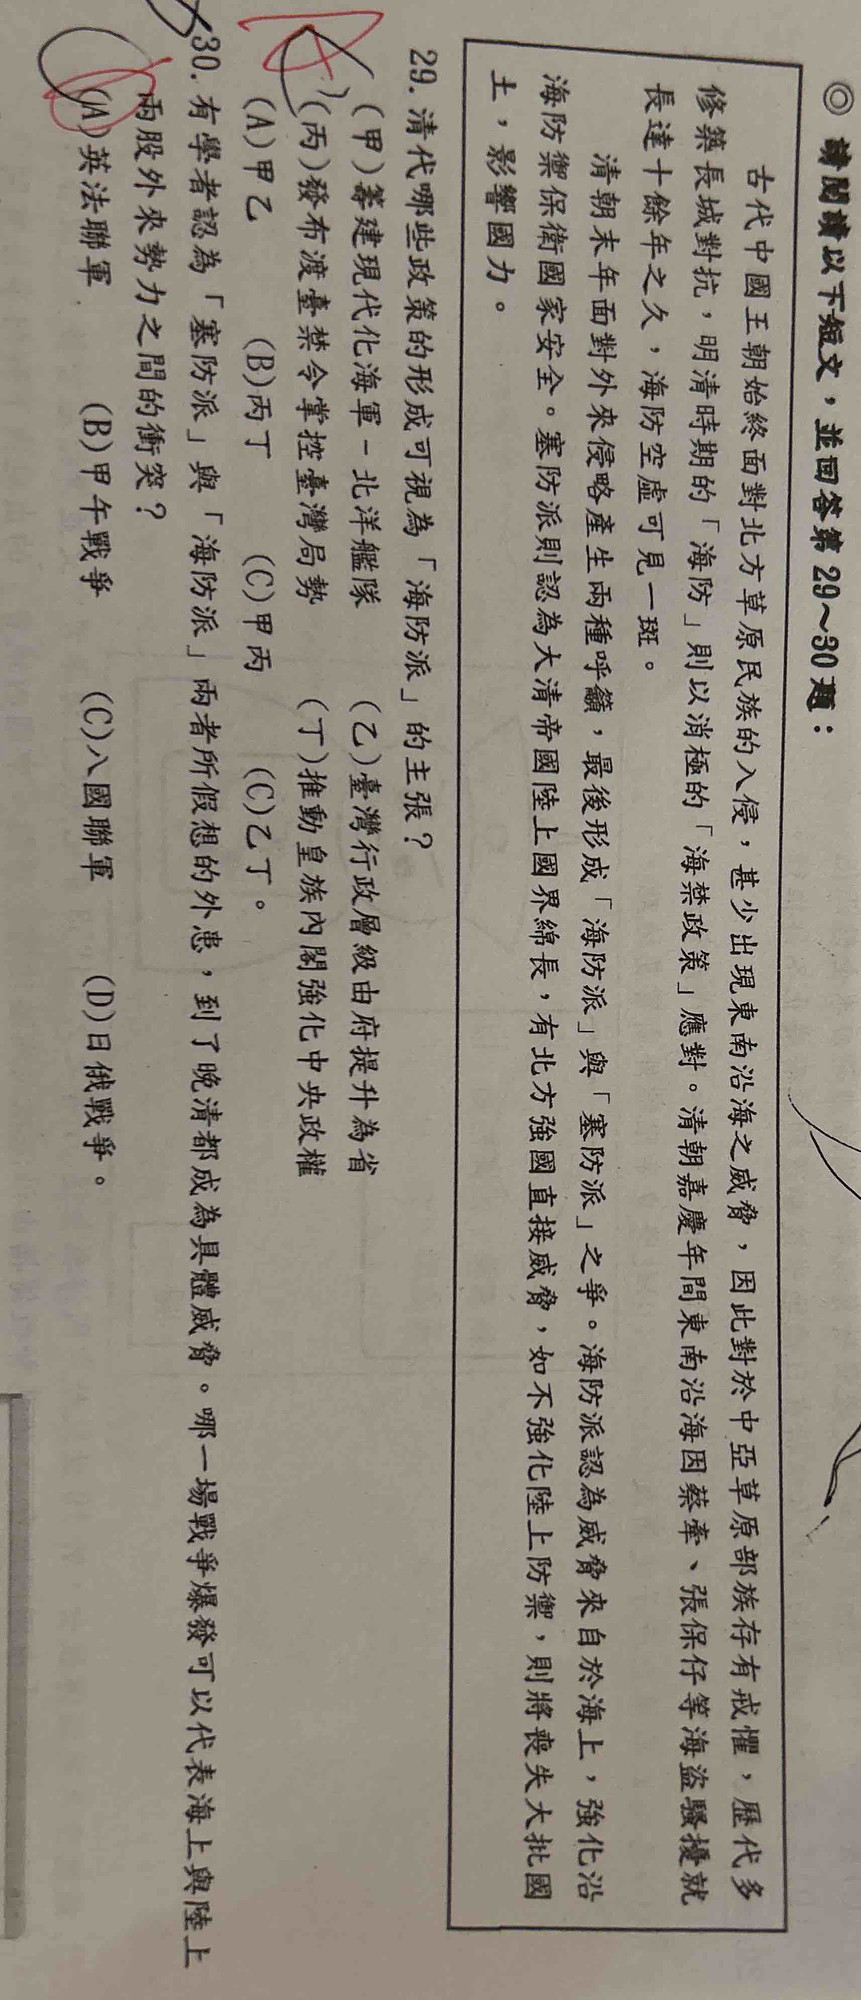 ◎ 請閱讀以下短文，並回答第 29～30 題：
古代中國王朝始終面對北方草原民族的入侵，甚少出現東南沿海之威脅，因此對於中亞草原部族存有戒懼，歷代多
修築長城對抗，明清時期的「海防」則以消極的「海禁政策」應對。清朝嘉慶年間東南沿海因蔡牽、張保仔等海盜騷擾就
長達十餘年之久，海防空虛可見一斑。
清朝末年面對外來侵略產生兩種呼籲，最後形成「海防派」與「塞防派」之爭。海防派認為威脅來自於海上，強化沿
海防禦保衛國家安全。塞防派則認為大清帝國陸上國界綿長，有北方強國直接威脅，如不強化陸上防禦，則將喪失大批國
土，影響國力。
29. 清代哪些政策的形成可視為「海防派」的主張？
(甲)籌建現代化海軍－北洋艦隊 (乙)臺灣行政層級由府提升為省
(丙)發布渡臺禁令掌控臺灣局勢 (丁)推動皇族內閣強化中央政權
(A)甲乙 (B)丙丁 (C)甲丙 (C)乙丁。
30. 有學者認為「塞防派」與「海防派」兩者所假想的外患，到了晚清都成為具體威脅。哪一場戰爭爆發可以代表海上與陸上
兩股外來勢力之間的衝突？
(A)英法聯軍 (B)甲午戰爭 (C)八國聯軍 (D)日俄戰爭。